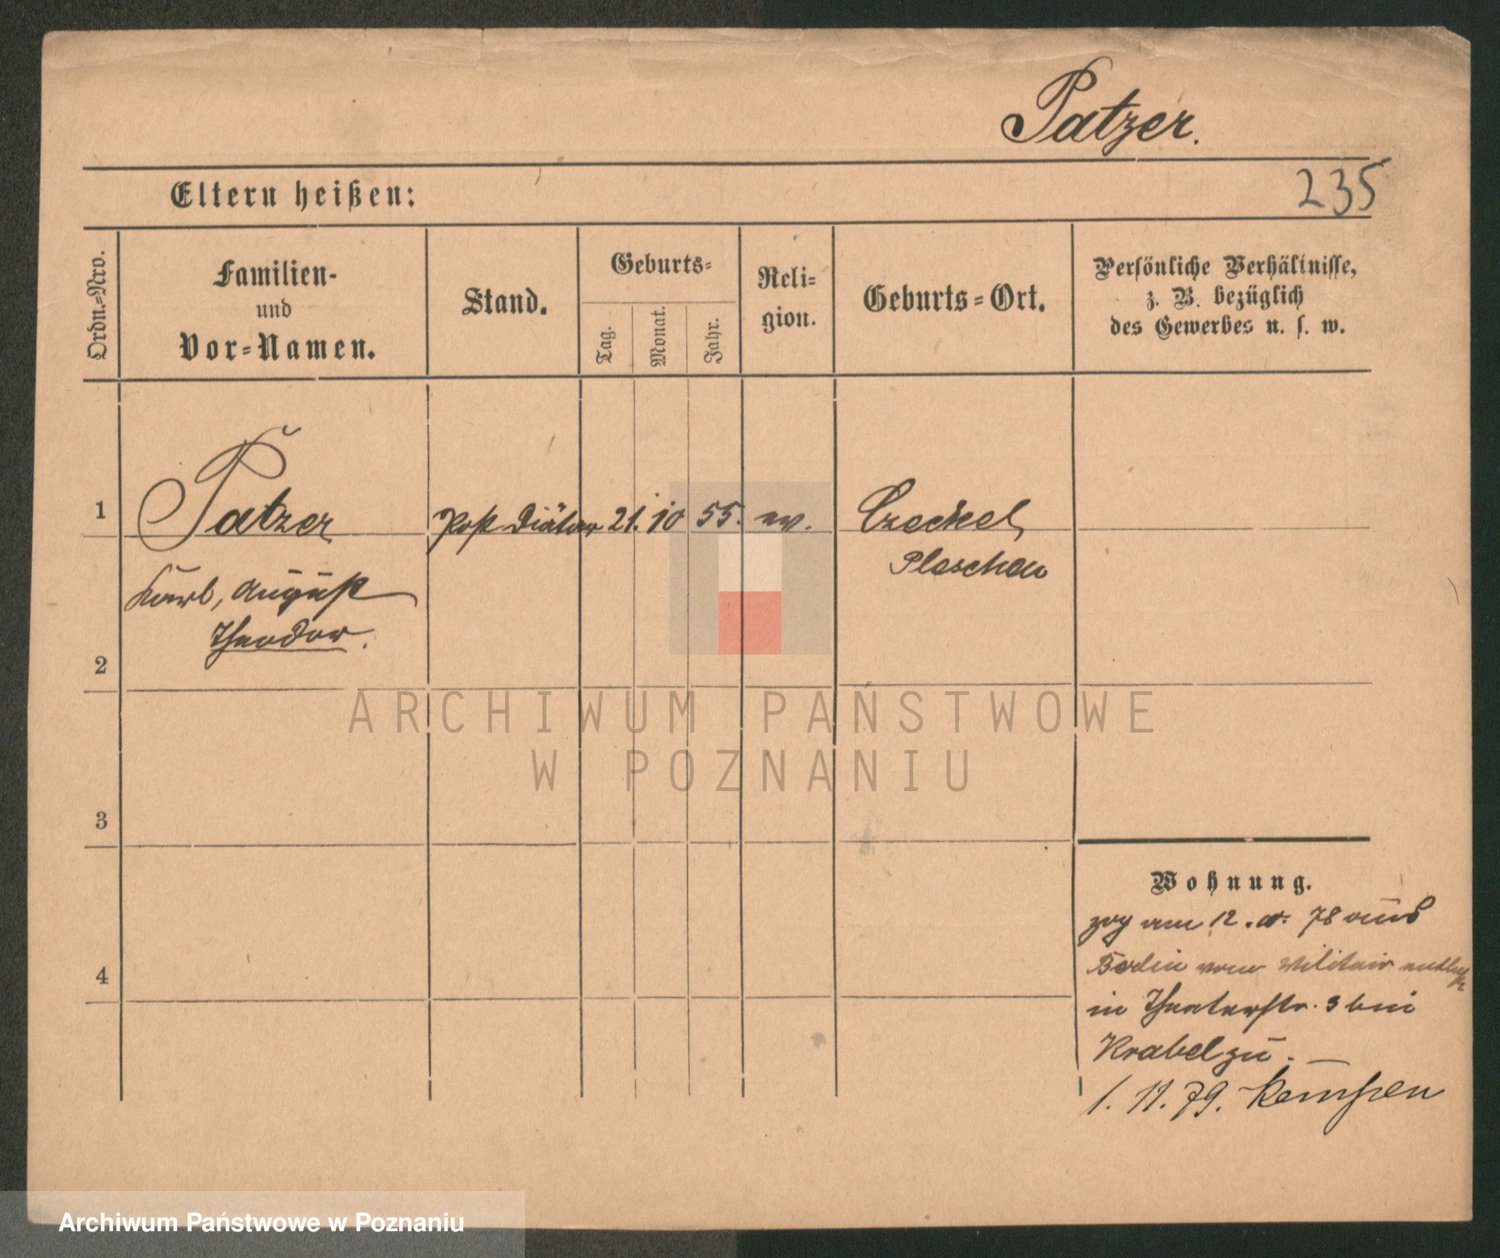 Patzer.
235
Eltern heißen:
Ordn.-Nro.
Familien-
und
Vor-Namen.
Stand.
Geburts-
Tag.
Monat.
Jahr.
Reli-
gion.
Geburts-Ort.
Persönliche Verhältnisse,
z. B. bezüglich
des Gewerbes u. s. w.
1
Patzer
Post Diätar
21.
10
55.
ev.
Czeckel,
Pleschen
Karl, August
Theodor.
2
ARCHIWUM PAŃSTWOWE
W POZNANIU
3
4
Wohnung.
zog am 12. 78 aus
Berlin vom Militair
in Theaterstr. 3 bei
Krabel zu.
1. 11. 79. Kempen
Archiwum Państwowe w Poznaniu